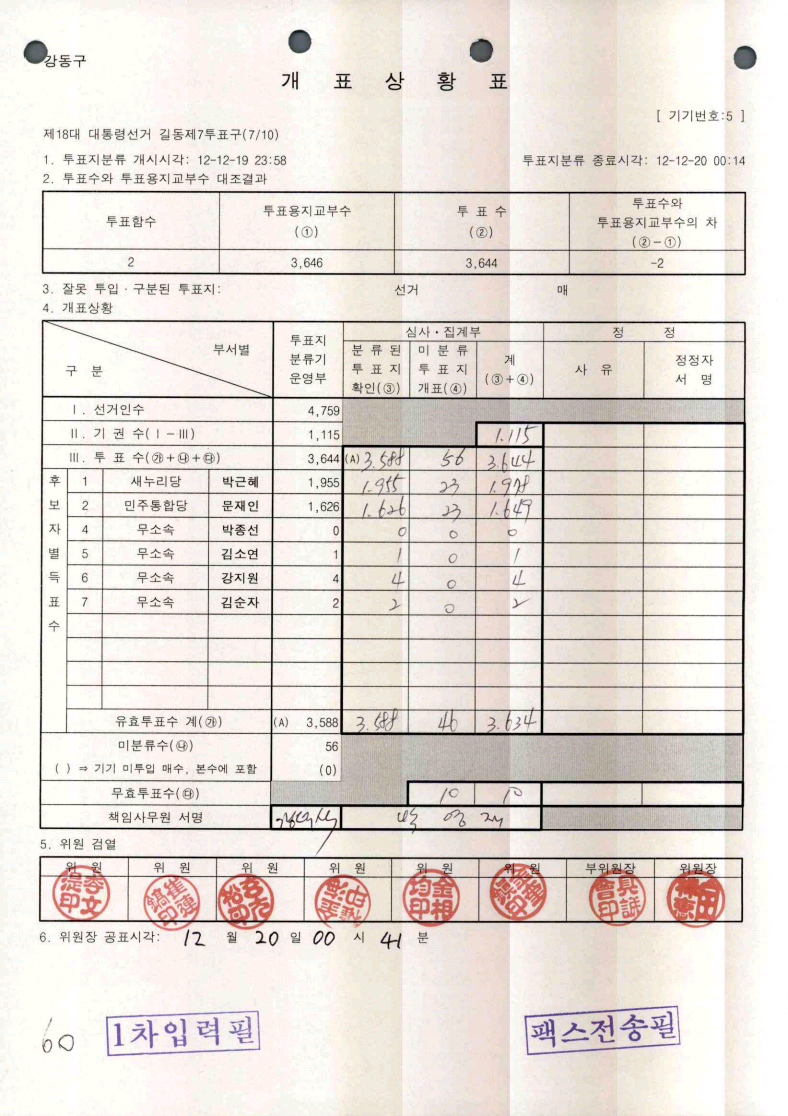 강동구
개 표 상 황 표
[ 기기번호:5 ]
제18대 대통령선거 길동제7투표구(7/10)
1. 투표지분류 개시시각: 12-12-19 23:58 투표지분류 종료시각: 12-12-20 00:14
2. 투표수와 투표용지교부수 대조결과
투표함수 투표용지교부수 (①) 투 표 수 (②) 투표수와 투표용지교부수의 차 (②-①)
2 3,646 3,644 -2
3. 잘못 투입·구분된 투표지: 선거 매
4. 개표상황
구 분 부서별 투표지 분류기 운영부 심사·집계부 정 정
분 류 된 투 표 지 확인(③) 미 분 류 투 표 지 개표(④) 계 (③+④) 사 유 정정자 서 명
Ⅰ. 선거인수 4,759
Ⅱ. 기 권 수(Ⅰ-Ⅲ) 1,115 1.115
Ⅲ. 투 표 수(㉮+㉯+㉰) 3,644 (A) 3.588 56 3.644
후보자별득표수
1 새누리당 박근혜 1,955 1.955 23 1.978
2 민주통합당 문재인 1,626 1.626 23 1.649
4 무소속 박종선 0 0 0 0
5 무소속 김소연 1 1 0 1
6 무소속 강지원 4 4 0 4
7 무소속 김순자 2 2 0 2
유효투표수 계(㉮) (A) 3,588 3.588 46 3.634
미분류수(㉯) 56
( ) ⇒ 기기 미투입 매수, 본수에 포함 (0)
무효투표수(㉰) 10 10
책임사무원 서명
5. 위원 검열
위 원 위 원 위 원 위 원 위 원 위 원 부위원장 위원장
6. 위원장 공표시각: 12 월 20 일 00 시 41 분
60 1차입력필 팩스전송필